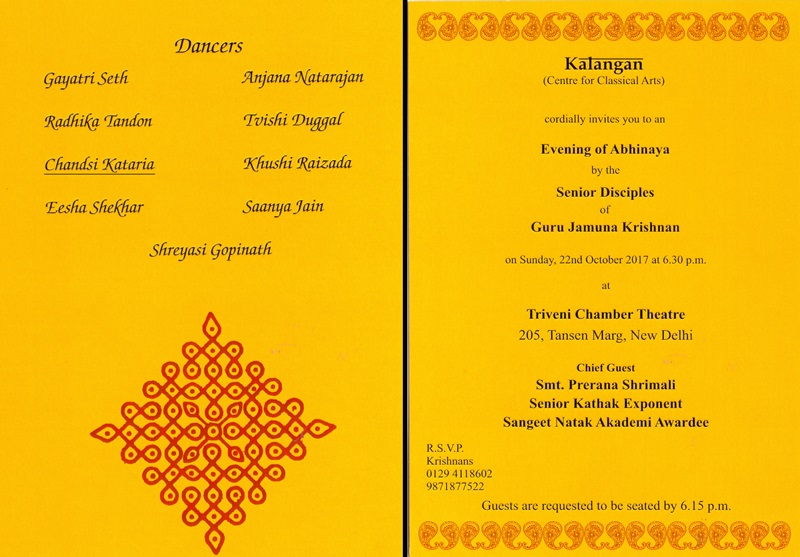 Dancers
Gayatri Seth
Anjana Natarajan
Radhika Tandon
Tvishi Duggal
Chandsi Kataria
Khushi Raizada
Eesha Shekhar
Saanya Jain
Shreyasi Gopinath
Kalangan
(Centre for Classical Arts)
cordially invites you to an
Evening of Abhinaya
by the
Senior Disciples
of
Guru Jamuna Krishnan
on Sunday, 22nd October 2017 at 6.30 p.m.
at
Triveni Chamber Theatre
205, Tansen Marg, New Delhi
Chief Guest
Smt. Prerana Shrimali
Senior Kathak Exponent
Sangeet Natak Akademi Awardee
R.S.V.P.
Krishnans
0129 4118602
9871877522
Guests are requested to be seated by 6.15 p.m.